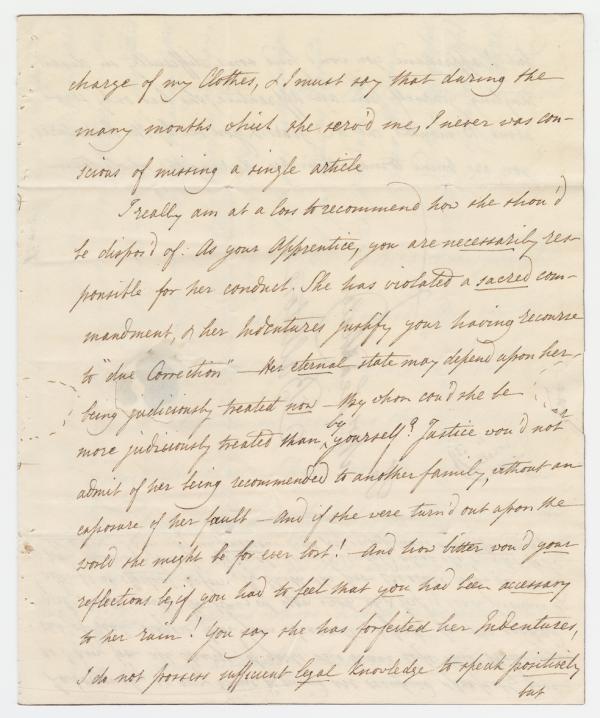 charge of my Clothes, & I must say that during the
many months which she serv'd me, I never was con-
scious of missing a single article
I really am at a loss to recommend how she shou'd
be dispos'd of: As your Apprentice, you are necessarily res-
ponsible for her conduct. She has violated a sacred com-
mandment, & her Indentures justify your having recourse
to "due Correction" — Her eternal state may depend upon her
being judiciously treated now — By whom cou'd she be
more judiciously treated than by yourself? Justice wou'd not
admit of her being recommended to another family, without an
exposure of her fault — And if she were turn'd out upon the
world she might be for ever lost! — And how bitter wou'd your
reflections be, if you had to feel that you had been accessary
to her ruin! You say she has forfeited her Indentures,
I do not possess sufficient legal knowledge to speak positively
but